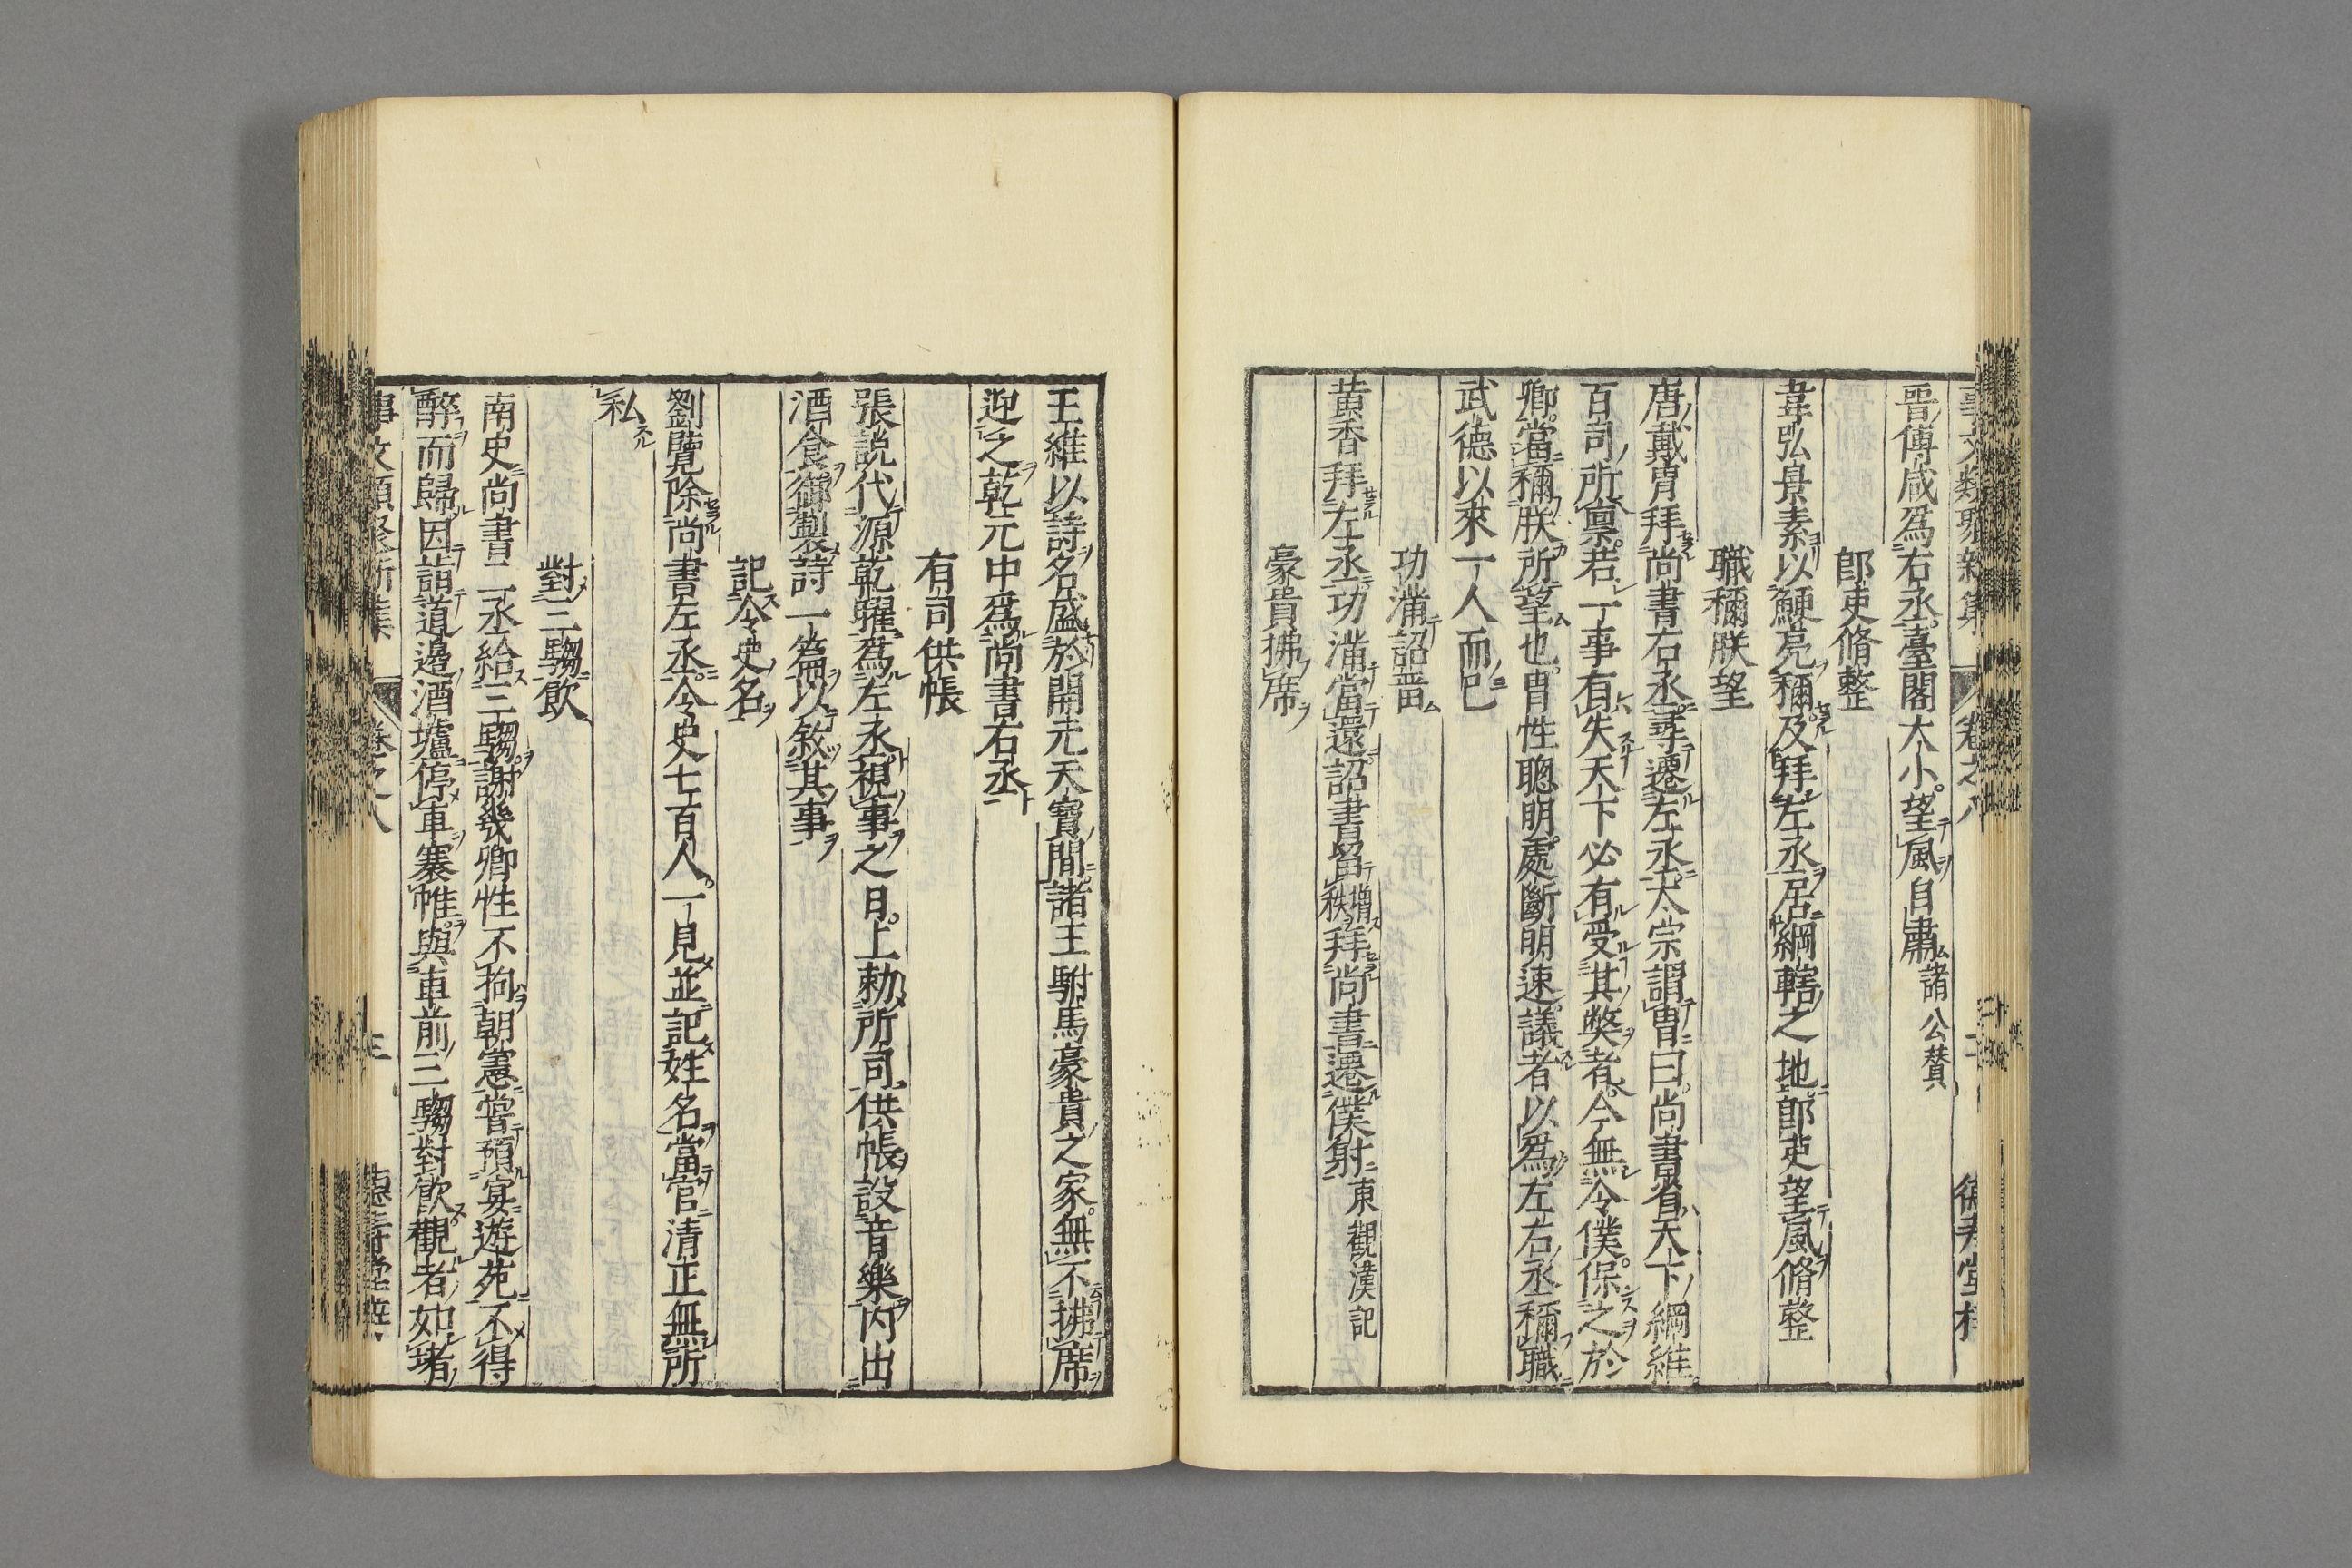 晉傅咸爲右丞臺閣大小望風自肅諸公賛
郎吏脩整
韋弘景素以鯁亮稱及拜左丞居綱轄之地郎吏望風脩整
職稱朕望
唐戴冑拜尚書右丞尋遷左丞太宗謂冑曰尚書省天下綱維
百司所禀若一事有失天下必有受其獘者今無令僕保之於
卿當稱朕所望也冑性聰明處斷明速議者以爲左右丞稱職
武德以來一人而巳
功滿詔畱
黄香拜左丞功滿當還詔書畱增秩拜尚書遷僕射東觀漢記
豪貴拂席
王維以詩名盛於開元天寳間諸王駙馬豪貴之家無不拂席
迎之乾元中爲尚書右丞
有司供帳
張説代源乾曜爲左丞視事之日上勅所司供帳設音樂内出
酒食御製詩一篇以敘其事
記令史名
劉覽除尚書左丞令史七百人一見並記姓名當官清正無所
私
對三騶飲
南史尚書二丞給三騶謝幾卿性不拘朝憲嘗預宴遊苑不得
醉而歸因詣道邊酒壚停車褰帷與車前三騶對飮觀者如堵